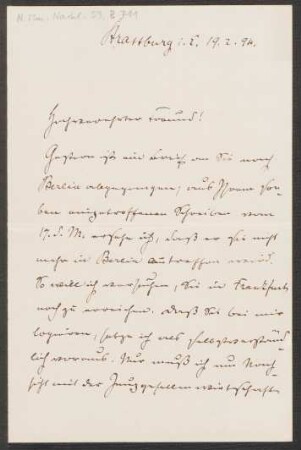 Strassburg i. E. 19. 2. 94.
Hochverehrter Freund!
Gestern ist ein Brief an Sie nach
Berlin abgegangen; aus Ihrem so¬
eben eingetroffenen Schreiben vom
17. d. M. ersehe ich, daß er Sie nicht
mehr in Berlin antreffen wird.
So will ich versuchen, Sie in Frankfurt
noch zu erreichen. Daß Sie bei mir
logieren, setze ich als selbstverständ¬
lich voraus. Nur muß ich um Nach¬
sicht mit der Junggesellenwirtschaft